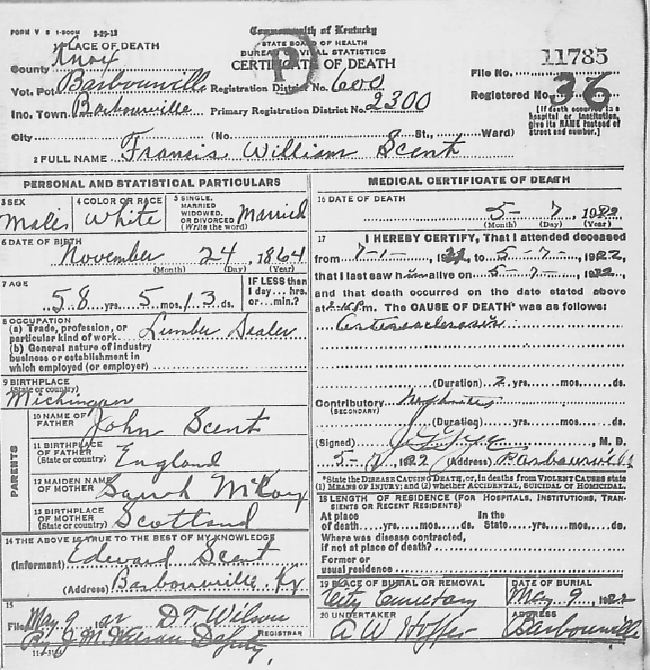 FORM V S 1-500M 3-29-13
Commonwealth of Kentucky
STATE BOARD OF HEALTH
BUREAU OF VITAL STATISTICS
CERTIFICATE OF DEATH
PLACE OF DEATH
County Knox
Vot. Pct Barbourville Registration District No. 600
Inc. Town Barbourville Primary Registration District No. 2300
File No. 11785
Registered No. 36
[If death occurred in a hospital or institution, give its NAME instead of street and number.]
City (No. St., Ward)
2 FULL NAME Francis William Scent
PERSONAL AND STATISTICAL PARTICULARS
3 SEX Male
4 COLOR OR RACE White
5 SINGLE, MARRIED WIDOWED, OR DIVORCED (Write the word) Married
6 DATE OF BIRTH
November 24, 1864
(Month) (Day) (Year)
7 AGE
58 yrs. 5 mos. 13 ds.
IF LESS than 1 day... hrs. or... min.?
8 OCCUPATION
(a) Trade, profession, or particular kind of work Lumber Dealer
(b) General nature of industry
business or establishment in
which employed (or employer)
9 BIRTHPLACE
(State or country)
Michingan
PARENTS
10 NAME OF FATHER John Scent
11 BIRTHPLACE OF FATHER (State or country) England
12 MAIDEN NAME OF MOTHER Sarah McKoy
13 BIRTHPLACE OF MOTHER (State or country) Scotland
14 THE ABOVE IS TRUE TO THE BEST OF MY KNOWLEDGE
(Informant) Edward Scent
(Address) Barbourville Ky
15
Filed May 9, 1922 D T Wilson
REGISTRAR
By J M Wilson Deputy,
MEDICAL CERTIFICATE OF DEATH
16 DATE OF DEATH
5-7, 1922
(Month) (Day) (Year)
17 I HEREBY CERTIFY, That I attended deceased
from 7-1-, 1921 to 5-7-, 1922,
that I last saw him alive on 5-7-, 1922,
and that death occurred on the date stated above
at m. The CAUSE OF DEATH* was as follows:
Arteriosclerosis
(Duration) 2 yrs. mos. ds.
Contributory
(SECONDARY)
(Duration) yrs. mos. ds.
(Signed) , M. D.
5-9, 1922 (Address) Barbourville
*State the DISEASE CAUSING DEATH, or, in deaths from VIOLENT CAUSES state (1) MEANS OF INJURY; and (2) whether ACCIDENTAL, SUICIDAL OR HOMICIDAL.
18 LENGTH OF RESIDENCE (FOR HOSPITALS, INSTITUTIONS, TRANSIENTS OR RECENT RESIDENTS)
At place of death yrs. mos. ds. In the State yrs. mos. ds.
Where was disease contracted,
if not at place of death?
Former or
usual residence
19 PLACE OF BURIAL OR REMOVAL
City Cemetary
DATE OF BURIAL
May 9, 1922
20 UNDERTAKER
A W Hopper
ADDRESS
Barbourville